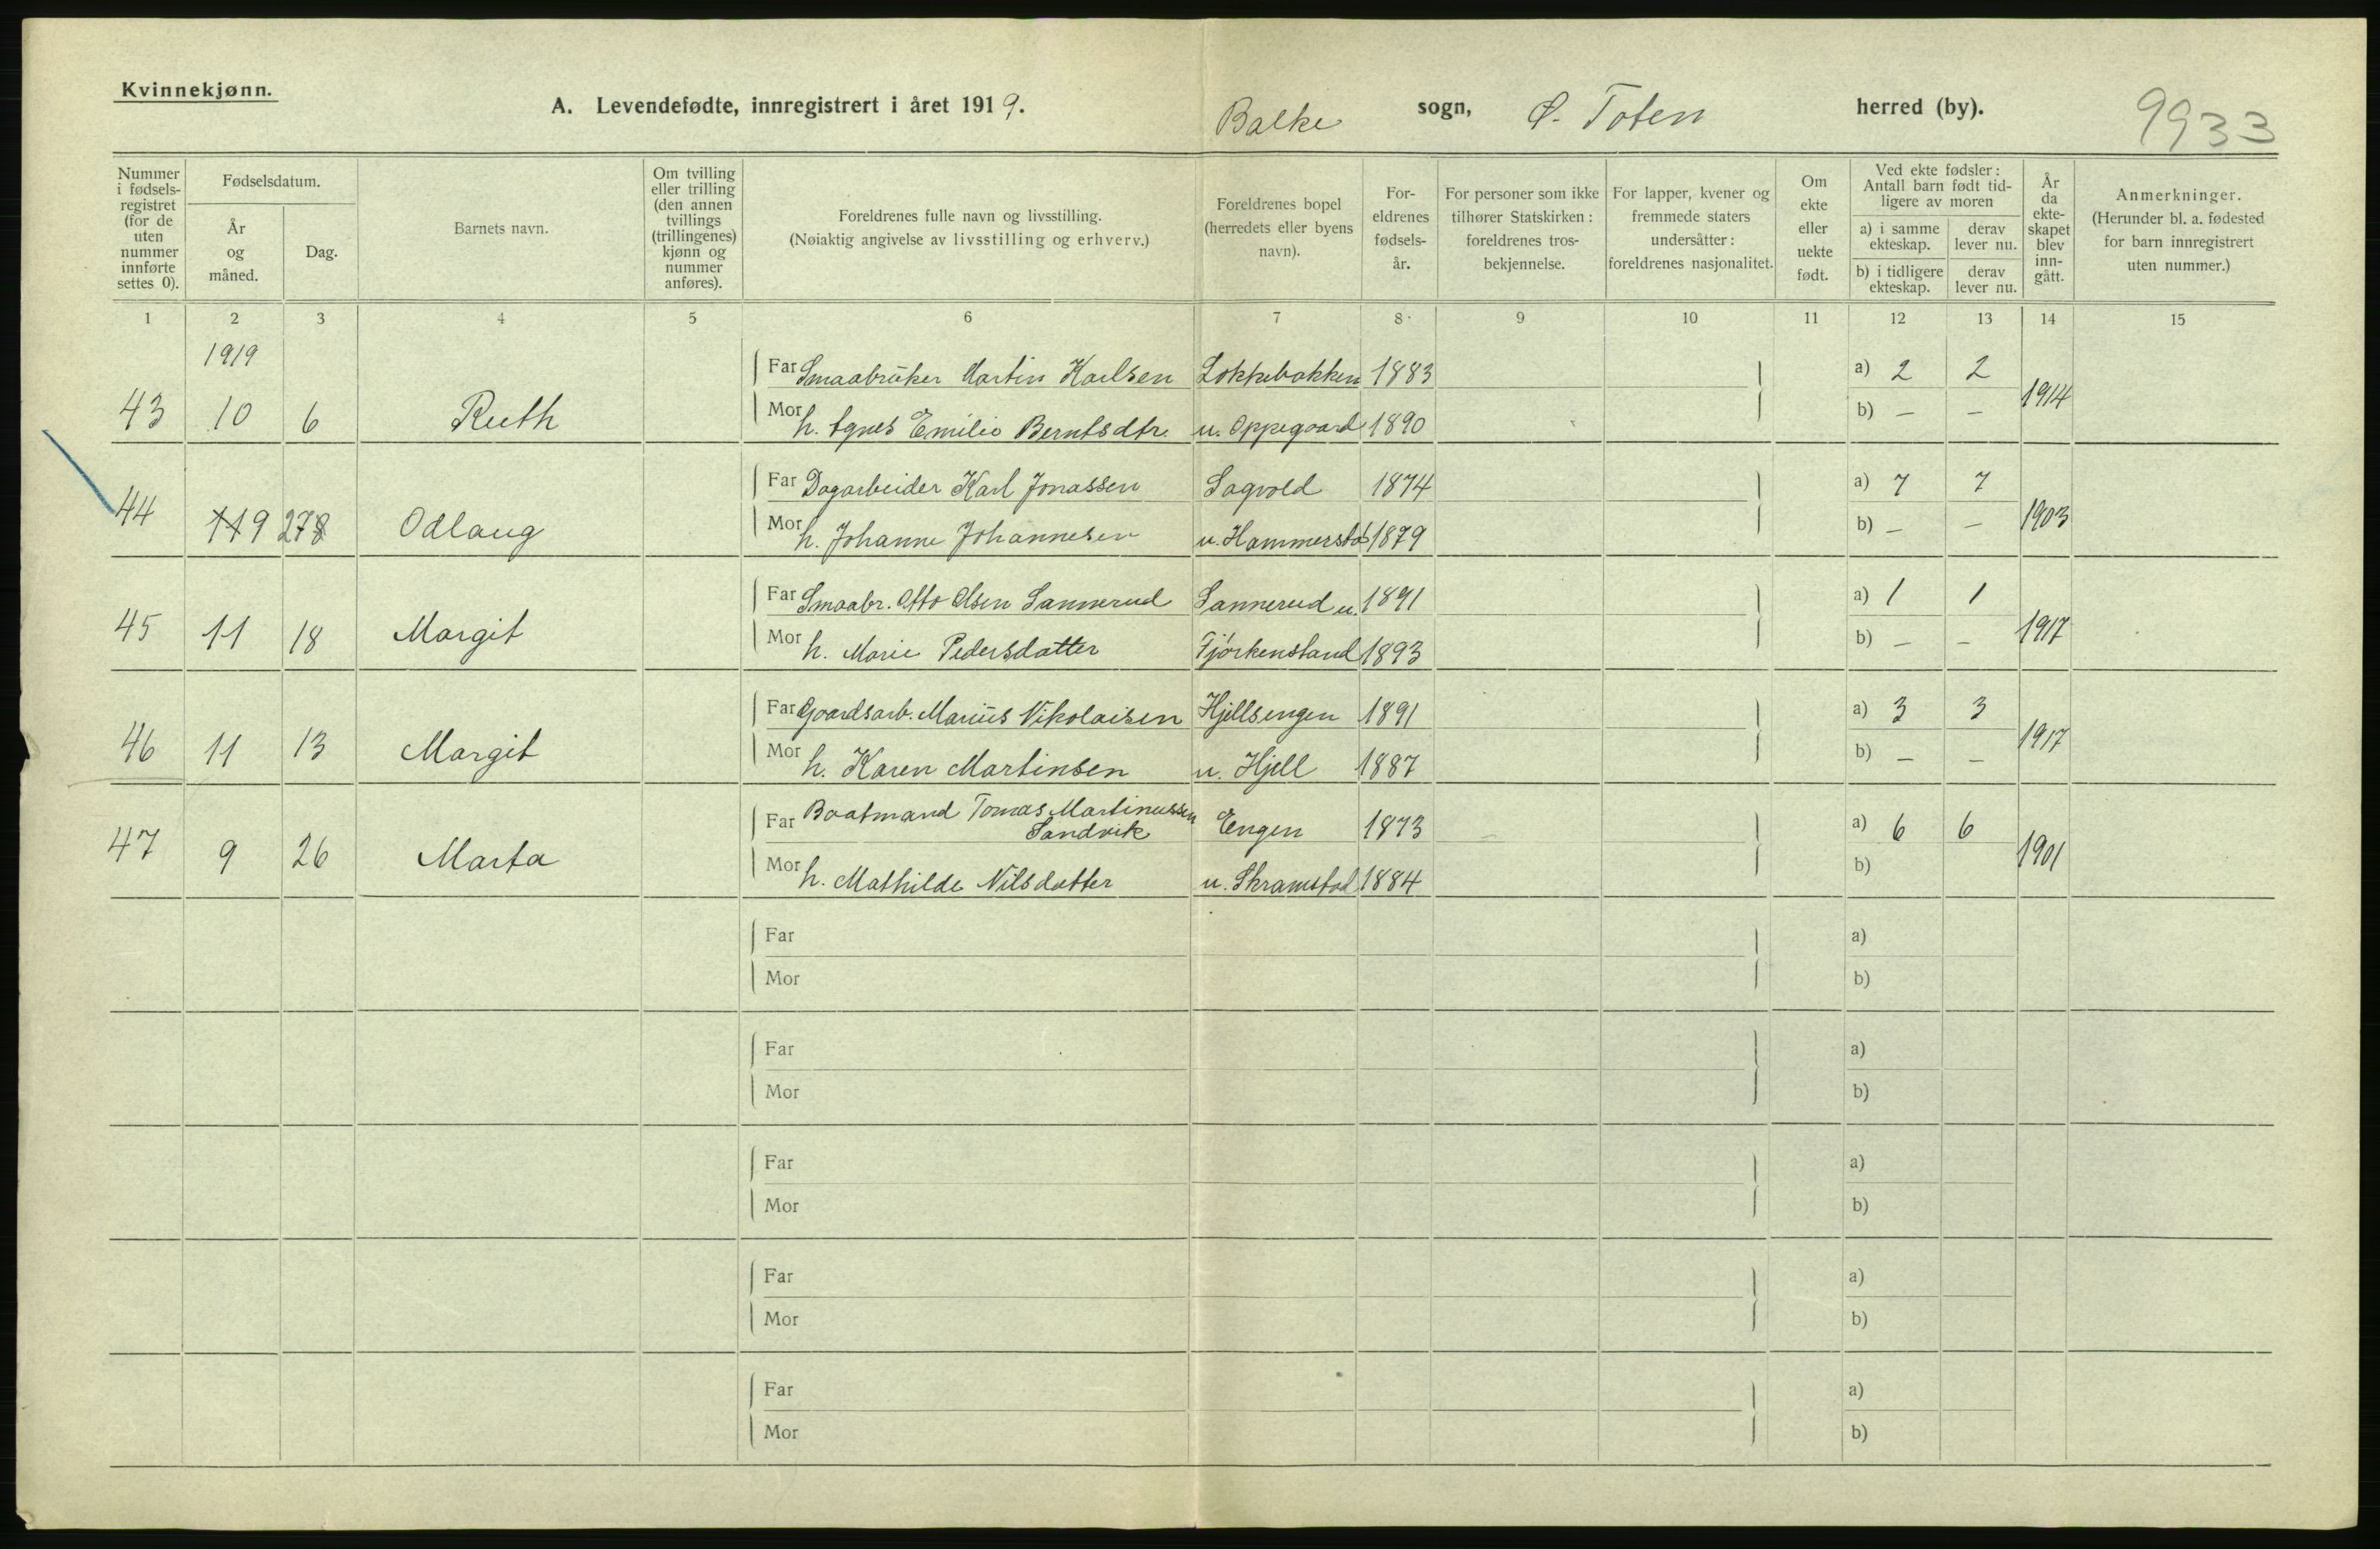 Kvinnekjønn.
A. Levendefødte, innregistrert i året 1919.
Balke sogn, Ø. Toten herred (by).
9933
Nummer i fødsels-registret (for de uten nummer innførte settes 0).
Fødselsdatum.
År og måned.
Dag.
Barnets navn.
Om tvilling eller trilling (den annen tvillings (trillingenes) kjønn og nummer anføres).
Foreldrenes fulle navn og livsstilling.
(Nøiaktig angivelse av livsstilling og erhverv.)
Foreldrenes bopel (herredets eller byens navn).
For-eldrenes fødsels-år.
For personer som ikke tilhører Statskirken: foreldrenes tros-bekjennelse.
For lapper, kvener og fremmede staters undersåtter: foreldrenes nasjonalitet.
Om ekte eller uekte født.
Ved ekte fødsler: Antall barn født tid-ligere av moren
a) i samme ekteskap.
derav lever nu.
b) i tidligere ekteskap.
derav lever nu.
År da ekte-skapet blev inn-gått.
Anmerkninger.
(Herunder bl. a. fødested for barn innregistrert uten nummer.)
1 2 3 4 5 6 7 8 9 10 11 12 13 14 15
1919
Far Smaabruker Martin Karlsen Lokkebakken 1883 a) 2 2
43 10 6 Ruth 1914
Mor h. Agnes Emilie Berntsdtr. u. Oppegaard 1890 b) – –
Far Dagarbeider Karl Jonassen Sagvold 1874 a) 7 7
44 11 9 27 8 Odlaug 1903
Mor h. Johanne Johannesen u. Hammerstad 1879 b) – –
Far Smaabr. Otto Olsen Sannerud Sannerud u. 1891 a) 1 1
45 11 18 Margit 1917
Mor h. Marie Pedersdatter Fjørkenstand 1893 b) – –
Far Gaardsarb. Marius Nikolaisen Hjellsengen 1891 a) 3 3
46 11 13 Margit 1917
Mor h. Karen Martinsen u. Hjell 1887 b) – –
Far Baatmand Tomas Martinussen
Sandvik Engen 1873 a) 6 6
47 9 26 Marta 1901
Mor h. Mathilde Nilsdatter u. Skramstad 1884 b)
Far a)
Mor b)
Far a)
Mor b)
Far a)
Mor b)
Far a)
Mor b)
Far a)
Mor b)